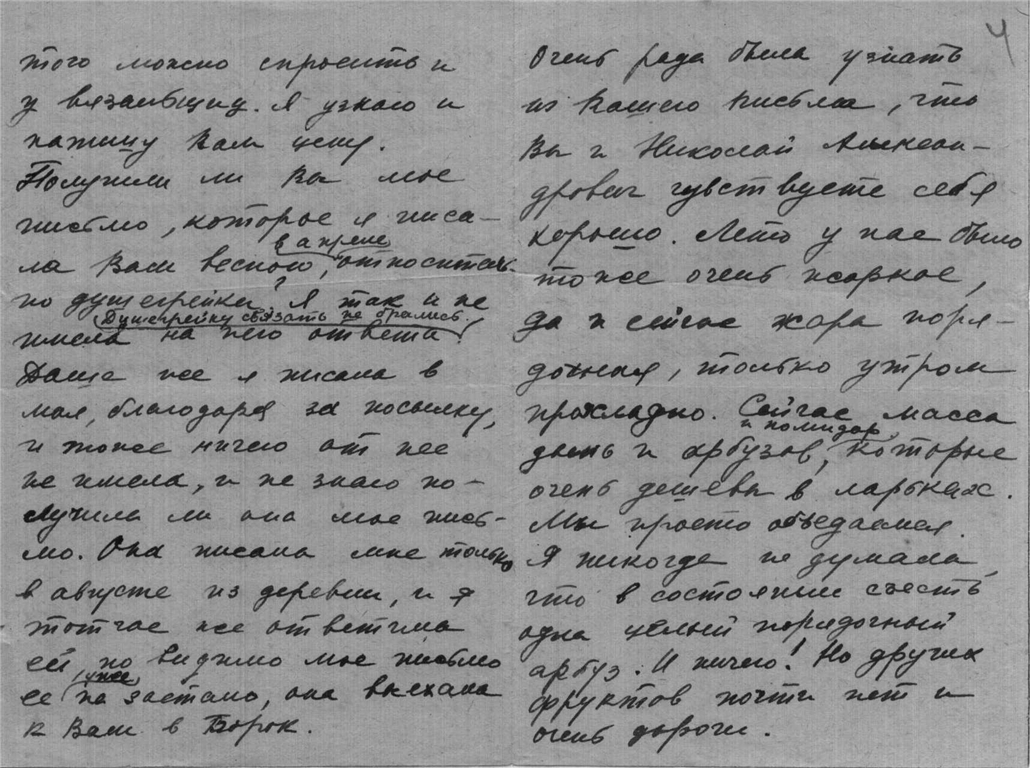 того можно спросить и
у вязальщиц. Я узнаю и
напишу Вам цену.
Получили ли Вы мое
письмо, которое я писа-
в апреле
ла Вам весной, относитель-
но душегрейки? Я так и не
(Душегрейку связать не брались.)
имела на него ответа.
Даше же я писала в
мая, благодаря за посылку,
и тоже ничего от нее
не имела, и не знаю по-
лучила ли она мое пись-
мо. Она писала мне только
в августе из деревни, и я
тотчас же ответила
ей, но видимо мое письмо
уже
ее не застало, она выехала
к Вам в Борок.
4
Очень рада была узнать
из Вашего письма, что
Вы и Николай Алексан-
дрович чувствуете себя
хорошо. Лето у нас было
тоже очень жаркое,
да и сейчас жара поря-
дочная, только утром
прохладно. Сейчас масса
и помидор
дынь и арбузов, которые
очень дешевы в ларьках.
Мы просто объедаемся.
Я никогда не думала,
что в состоянии съесть
одна целый порядочный
арбуз. И ничего! Но других
фруктов почти нет и
очень дороги.